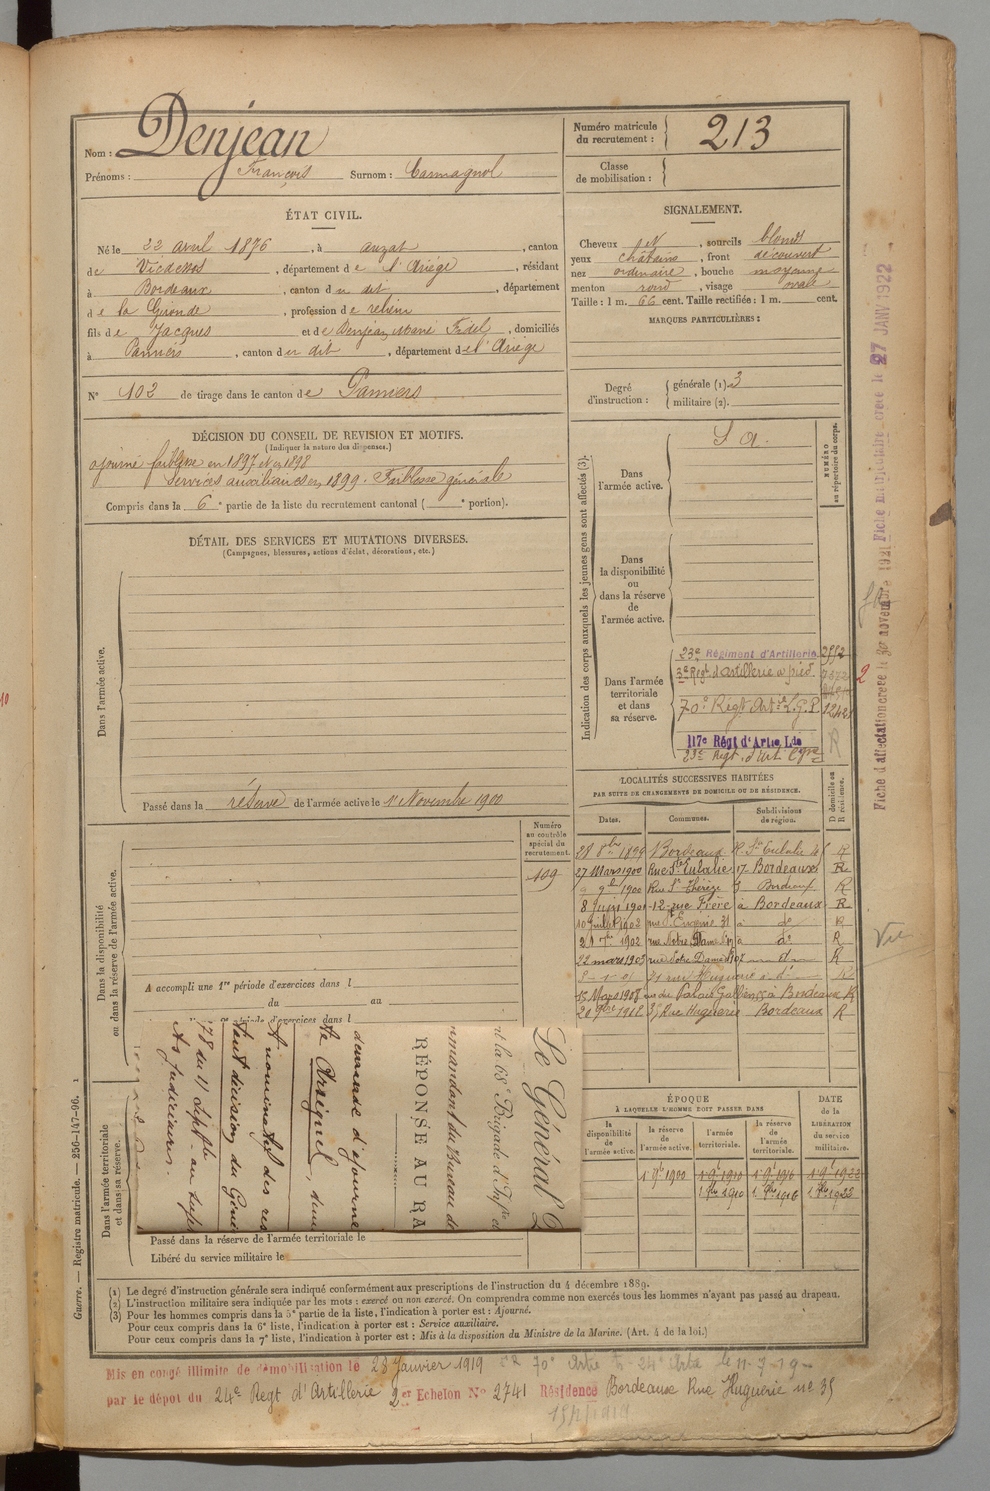 Nom : Denjean
Prénoms : François Surnom : Carmagnol
Numéro matricule
du recrutement : 213
Classe
de mobilisation :
ÉTAT CIVIL.
Né le 22 avril 1876, à auzat, canton
de Vicdessos, département de l'Ariège, résidant
à Bordeaux, canton du dit, département
de la Gironde, profession de
fils de Jacques et de Denjean Marie Fidel, domiciliés
à Pamiers, canton du dit, département de l'Ariège
N° 102 de tirage dans le canton de Pamiers
DÉCISION DU CONSEIL DE REVISION ET MOTIFS.
(Indiquer la nature des dispenses.)
ajourné faiblesse en 1897 et en 1898
Services auxiliaires en 1899. Faiblesse générale
Compris dans la 6e partie de la liste du recrutement cantonal ( e portion).
DÉTAIL DES SERVICES ET MUTATIONS DIVERSES.
(Campagnes, blessures, actions d'éclat, décorations, etc.)
Dans l'armée active.
Passé dans la réserve de l'armée active le 1er Novembre 1900
Numéro
au contrôle
spécial du
recrutement.
109
Dans la disponibilité
ou dans la réserve de l'armée active.
A accompli une 1re période d'exercices dans l
du au
période d'exercices dans l
Le Général
nt la 68e Brigade d'Infie et
mmandant du Bureau de
RÉPONSE AU RA
demande d'ajourne
Arseguel
A nominatif des res
tant décision du Géné
78 du 11 Sept.
ts judiciaires.
Dans l'armée territoriale
et dans sa réserve.
Passé dans la réserve de l'armée territoriale le
Libéré du service militaire le
SIGNALEMENT.
Cheveux , sourcils blonds
yeux châtains, front découvert
nez ordinaire, bouche moyenne
menton rond, visage ovale
Taille : 1 m. 66 cent. Taille rectifiée : 1 m. cent.
MARQUES PARTICULIÈRES :
Degré
d'instruction :
générale (1). 3
militaire (2).
Indication des corps auxquels les jeunes gens sont affectés (3).
NUMÉRO
au répertoire du corps.
Dans
l'armée active.
S A.
Dans
la disponibilité
ou
dans la réserve
de
l'armée active.
Dans l'armée
territoriale
et dans
sa réserve.
23e Régiment d'Artillerie
3e Régt d'artillerie à pied
70e Régt Artie L.G.P.
117e Régt d'Artie Lde
23e Régt d'Art Cgne
R
LOCALITÉS SUCCESSIVES HABITÉES
PAR SUITE DE CHANGEMENTS DE DOMICILE OU DE RÉSIDENCE.
Dates. Communes. Subdivisions
de région.
D domicile ou
R résidence.
28 8bre 1899 Bordeaux R. Ste Eulalie R
27 Mars 1900 Rue Ste Eulalie 17 Bordeaux R
9bre 1900 Rue Ste Thérèse 3 Bordeaux R
8 Juin 1901 12 rue Frère à Bordeaux R
10 Juillet 1902 rue St Eugenie 31 à do R
1902 rue Notre Dame à do R
22 mars 1903 rue Notre Dame 107 d R
rue Huguerie à d R
15 Mars 1908 rue du Palais Gallien à Bordeaux R
9bre 1912 35 Rue Huguerie Bordeaux R
ÉPOQUE
À LAQUELLE L'HOMME DOIT PASSER DANS
la
disponibilité
de
l'armée active.
la réserve
de
l'armée active.
l'armée
territoriale.
la réserve
de
l'armée
territoriale.
DATE
de la
LIBÉRATION
du service
militaire.
1 9bre 1900 1 9bre 1910 1 9bre 1916 1 9bre 1922
1 8bre 1910 1 8bre 1916 1 8bre 1922
(1) Le degré d'instruction générale sera indiqué conformément aux prescriptions de l'instruction du 4 décembre 1889.
(2) L'instruction militaire sera indiquée par les mots : exercé ou non exercé. On comprendra comme non exercés tous les hommes n'ayant pas passé au drapeau.
(3) Pour les hommes compris dans la 5e partie de la liste, l'indication à porter est : Ajourné.
Pour ceux compris dans la 6e liste, l'indication à porter est : Service auxiliaire.
Pour ceux compris dans la 7e liste, l'indication à porter est : Mis à la disposition du Ministre de la Marine. (Art. 4 de la loi.)
Mis en congé illimité de démobilisation le 28 Janvier 1919
par le dépôt du 24e Regt d'Artillerie 2er Echelon N° 2741 Résidence Bordeaux Rue Huguerie n° 35
Guerre. — Registre matricule. — 256-147-96. 1
Fiche d'affectation créée le 30 novembre 1921 Fiche matriculaire créée le 27 JANV 1922
Vu
2